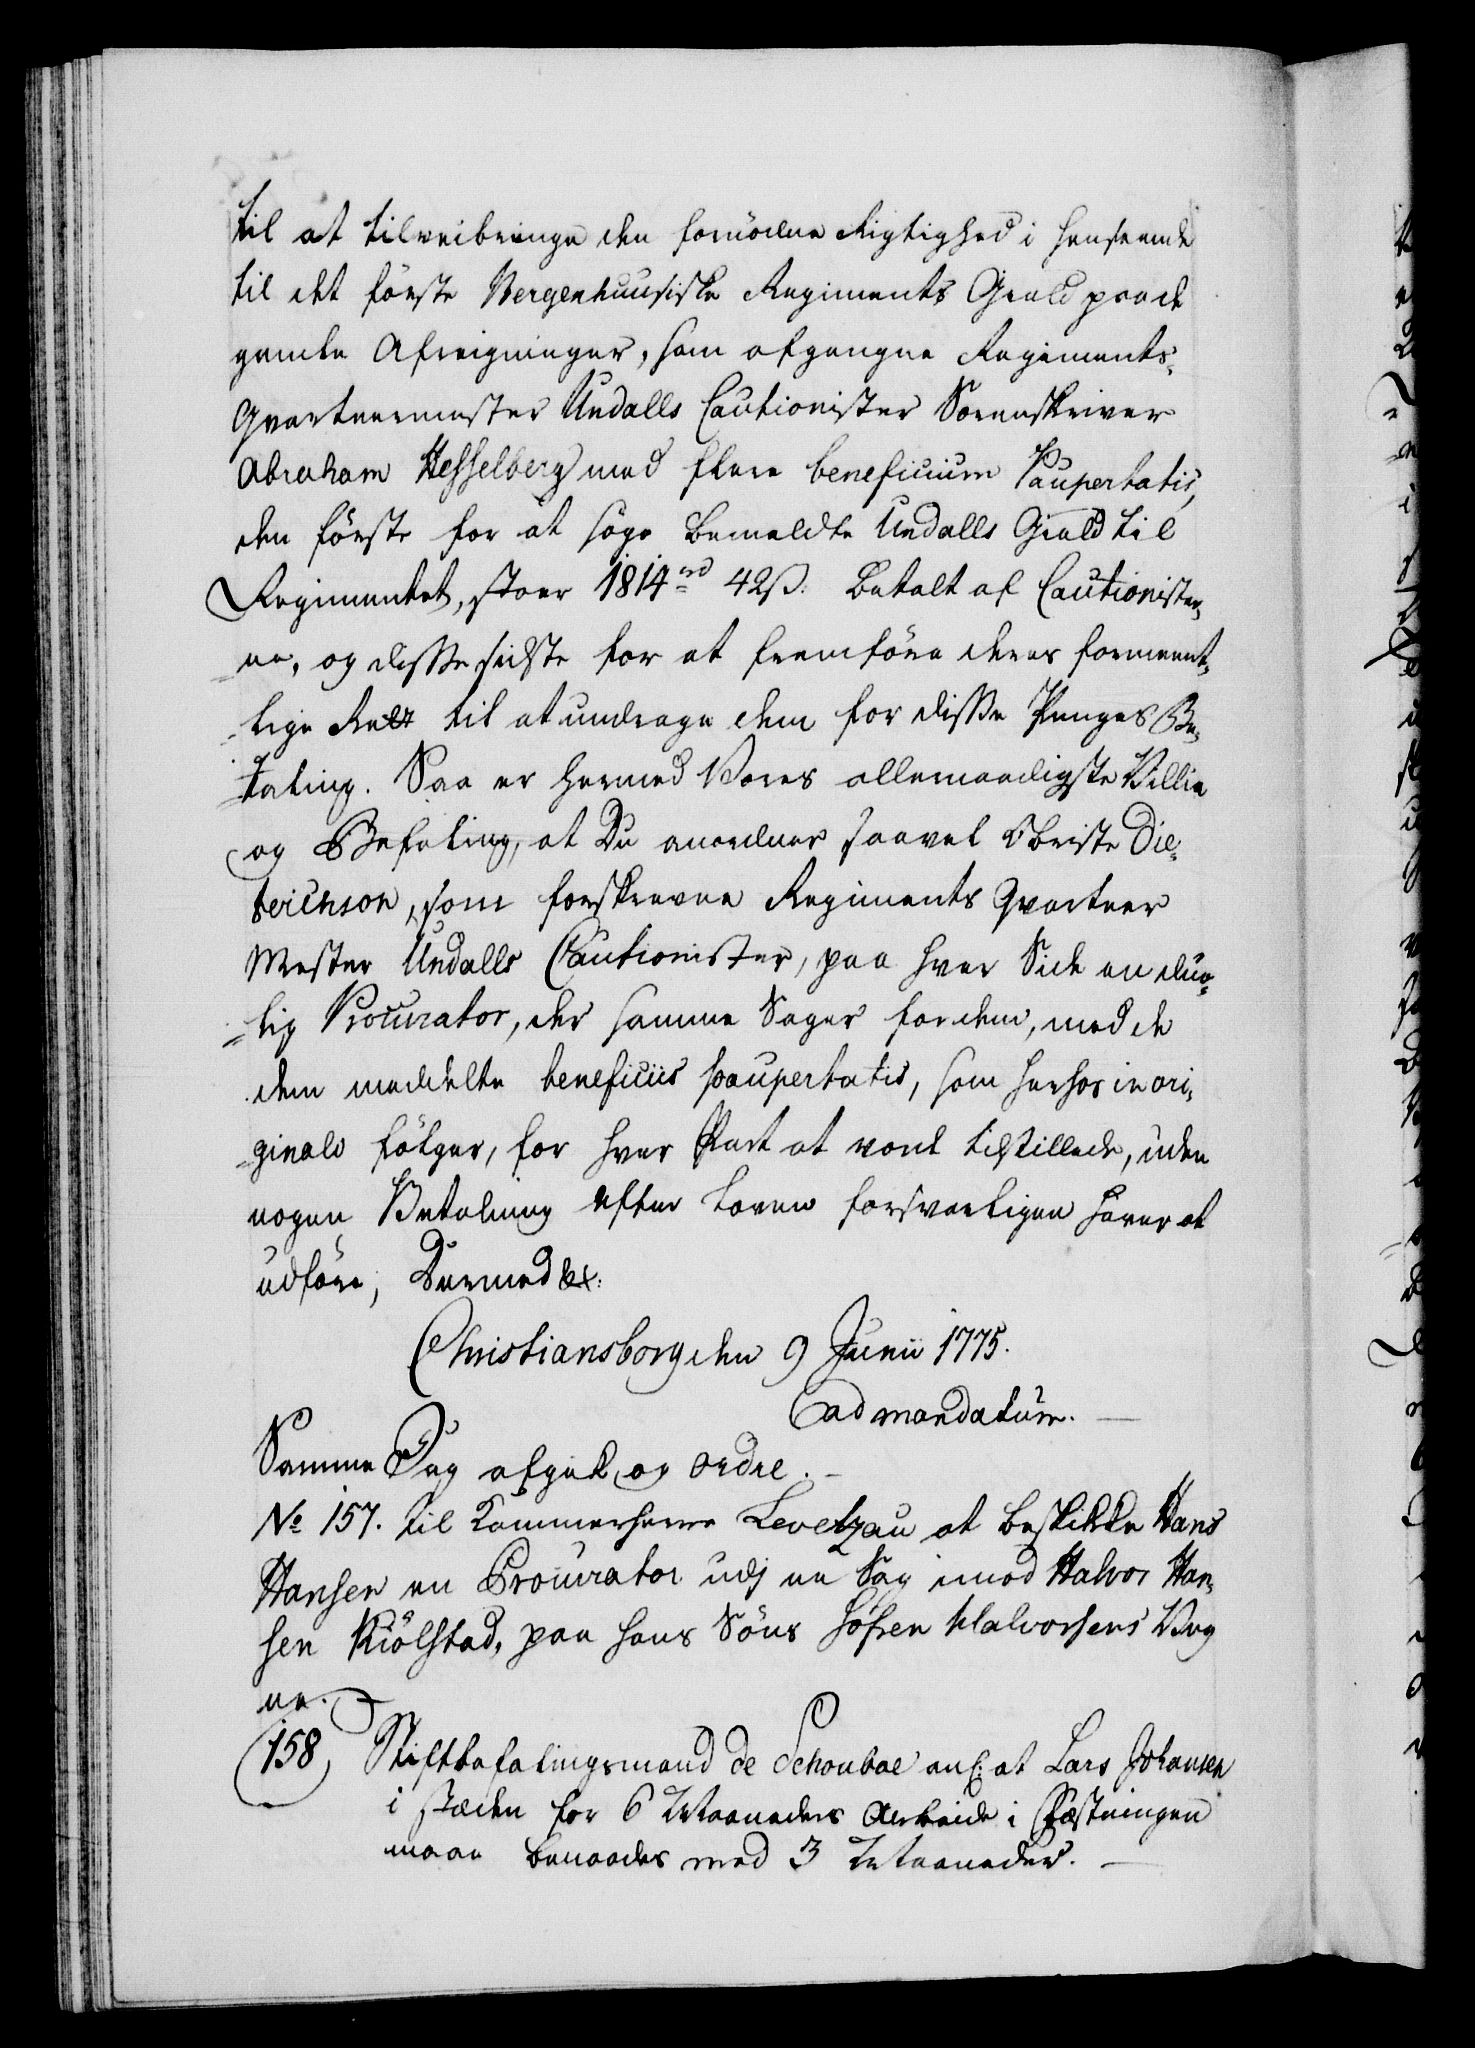 til at tilveibringe den fornödne Rigtighed i Henseende
til det förste Bergenhuusiske Regiments Gield paade
gamle Afreigninger, som afgangne Regiments-
Qvarteermester Undalls Cautionister Sorenskriver
Abraham Hesselberg med flere beneficium Paupertatis,
den förste for at söge bemeldte Undalls Gield til
Regimentet, stoer 1814 rd 42 ß: betalt af Cautionister-
ne, og disse sidste for at fremföre deres forment-
lige Rett til at undrage dem for disse Penges Be-
taling. Saa er hermed Vores allernaadigste Villie
og Befaling, at Du anordner saavel Obriste Die-
terichson, som forskrevne Regiments Qvarteer
Mester Undalls Cautionister, paa hver Side en due-
lig Procurator, der samme Sager for dem, med de
dem meddelte beneficiis paupertatis, som herhos in ori-
ginali fölger, for hver Part at vorde tilstillede, uden
nogen Betalning efter Loven forsvarligen haver at
udföre, Dermed &c:
Christiansborg den 9 Junii 1775.
ad mandatum.
Samme Dag afgik og ordre.
No 157. til Kammerherre Levetzau at beskikke Hans
Hansen en Procurator udj en Sag imod Halvor Han-
sen Kiölstad, paa hans Söns Hofren Halvorsens Veg-
ne.
158, Stiftbefalingsmand de Schouboe anl: at Lars Johansen
i stæden for 6 Maaneders Arbeide i Fæstningen
maae benaades med 3 Maaneder.